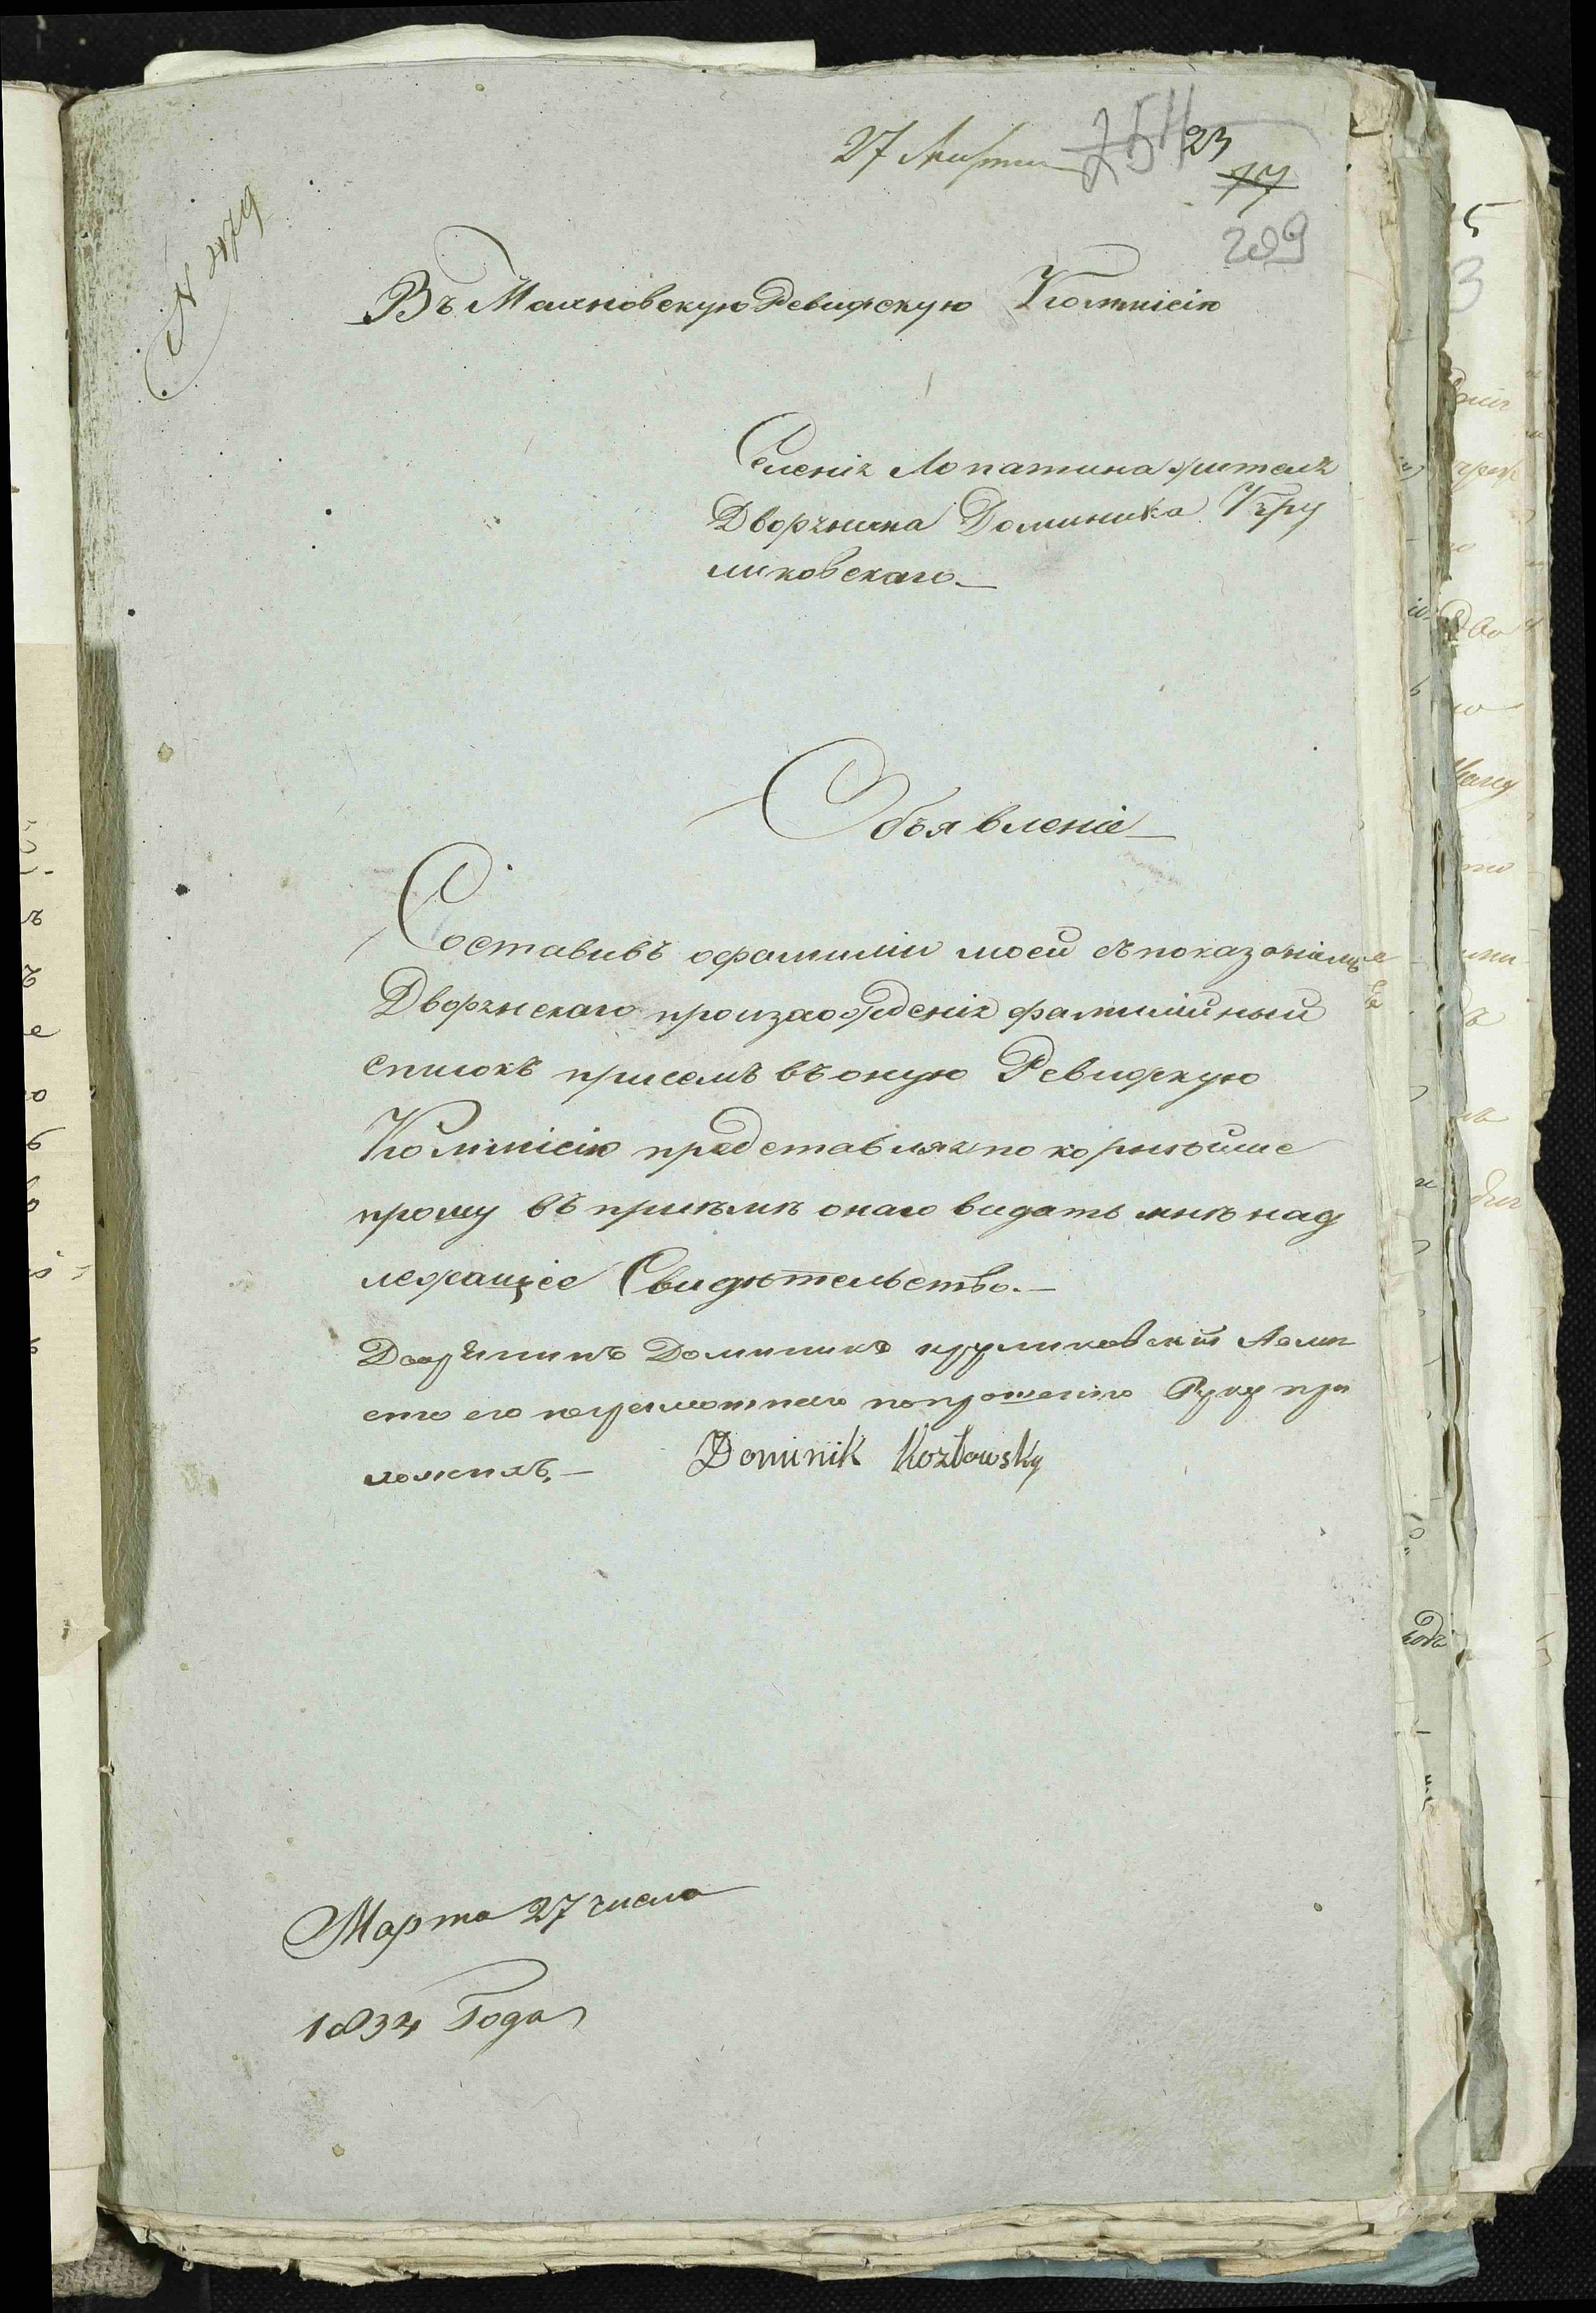 27 Марта 254 23
17
209
N 479
Въ Махновскую Ревизскую Комисію
Селенія Лопатина жителя
Дворянина Доминика Кру
ликовскаго
Объявленіе
Составивъ офамиліи моей съ показаніемъ
Дворянскаго произхожденія фамилійный
списокъ присемъ въ оную Ревизкую
Комисію представляя покорнѣйше
прошу въ пріемѣ онаго видать мнѣ над
лежащіе Свидѣтельство.
Дворянинъ Доминикъ круликовскій Авмѣ
сто его неграмотнаго попрошенію Руку при
ложилъ. Dominik Kozłowsky
Марта 27 числа
1834 Года